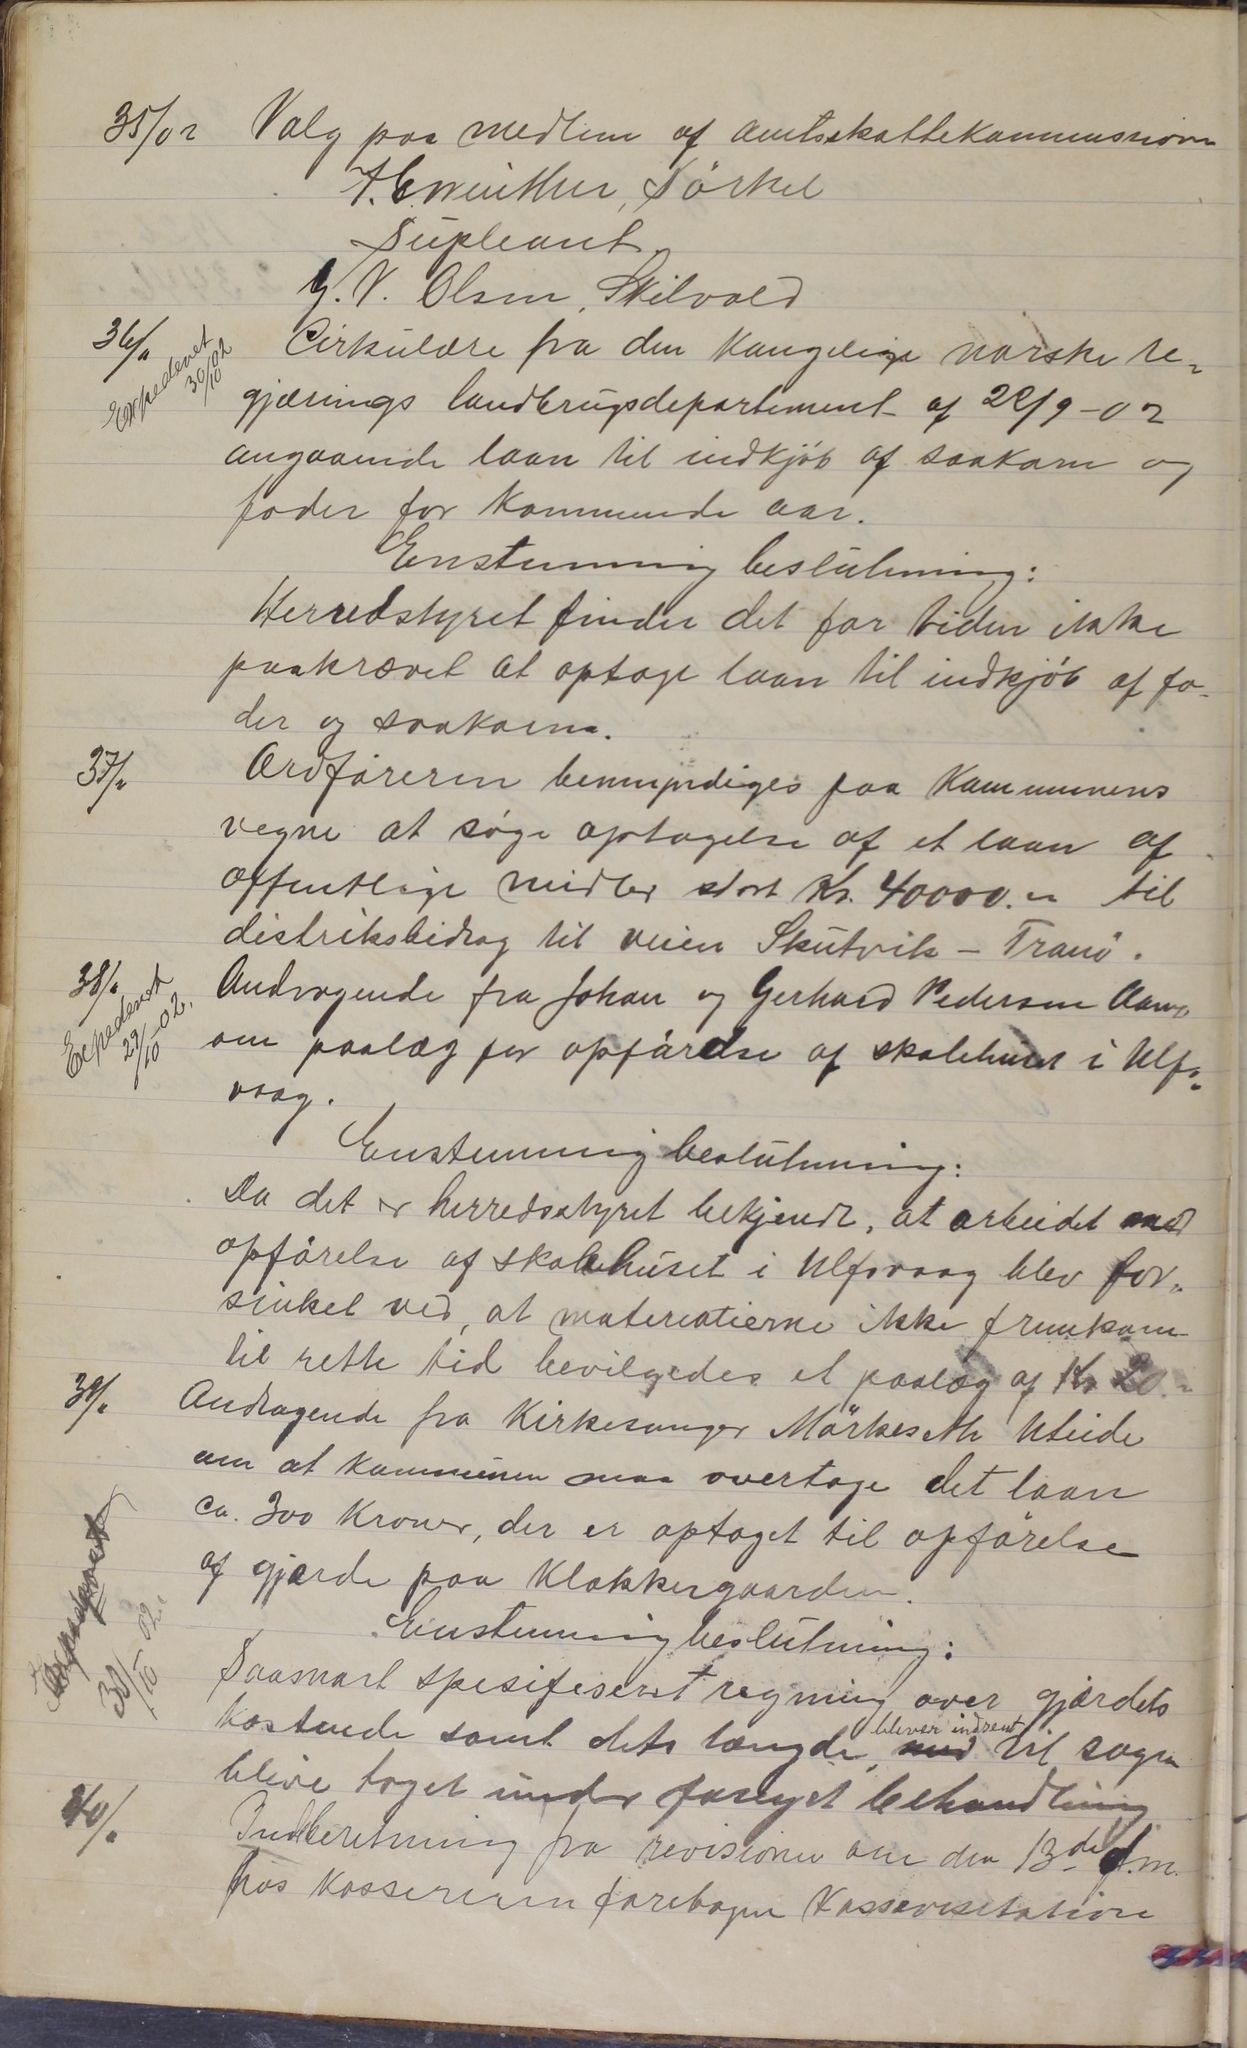 35/02 Valg paa medlem af amtsskattekommissionen
Winther, Sörkil
Supleant
G. V. Olsen, Skilvold
36/" Cirkulære fra den Kongelige norske re-
Expederet 30/10 02
gjærings landbrugsdepartement af 22/9-02
angaaende laan til indkjöb af saakorn og
foder for kommende aar.
Enstemmig beslutning:
Herredstyret finder det for tiden ikke
paakrævet at optage laan til indkjöb af fo-
der og saakorn.
37/" Ordföreren bemyndiges paa Kommunens
vegne at søge optagelse af et laan af
offentlige midler stort Kr. 40000.- til
distriksbidrag til veien Skutvik - Tranö.
38/" Andragende fra Johan og Gerhard Pedersen
Expederet 29/10-02.
om paalæg for opfärelse af skolehuset i Ulfs-
vaag.
Enstemmig beslutning:
Da det er herredsstyret bekjendt, at arbeidet med
opförelse af skolehuset i Ulfsvaag blev for-
sinket ved, at materialierne ikke fremkom
til rette tid bevilgedes et paalæg af Kr 20.-
39/" Andragende fra Kirkesanger Mörkeseth Uteide
om at kommunen maa overtage det laan
ca. 300 Kroner, der er optaget til opförelse
af gjærde paa Klokkergaarden.
Expederet 30/10 02.
Enstemmig beslutning:
Saasnart spesifiseret regning over gjærdets
kostende samt dets længde, bliver indsent vil sagen
blive taget under fornyet behandling
40/" Indberetning fra revisionen om den 13de d.m.
hos Kassereren foretagen Kassevisitation